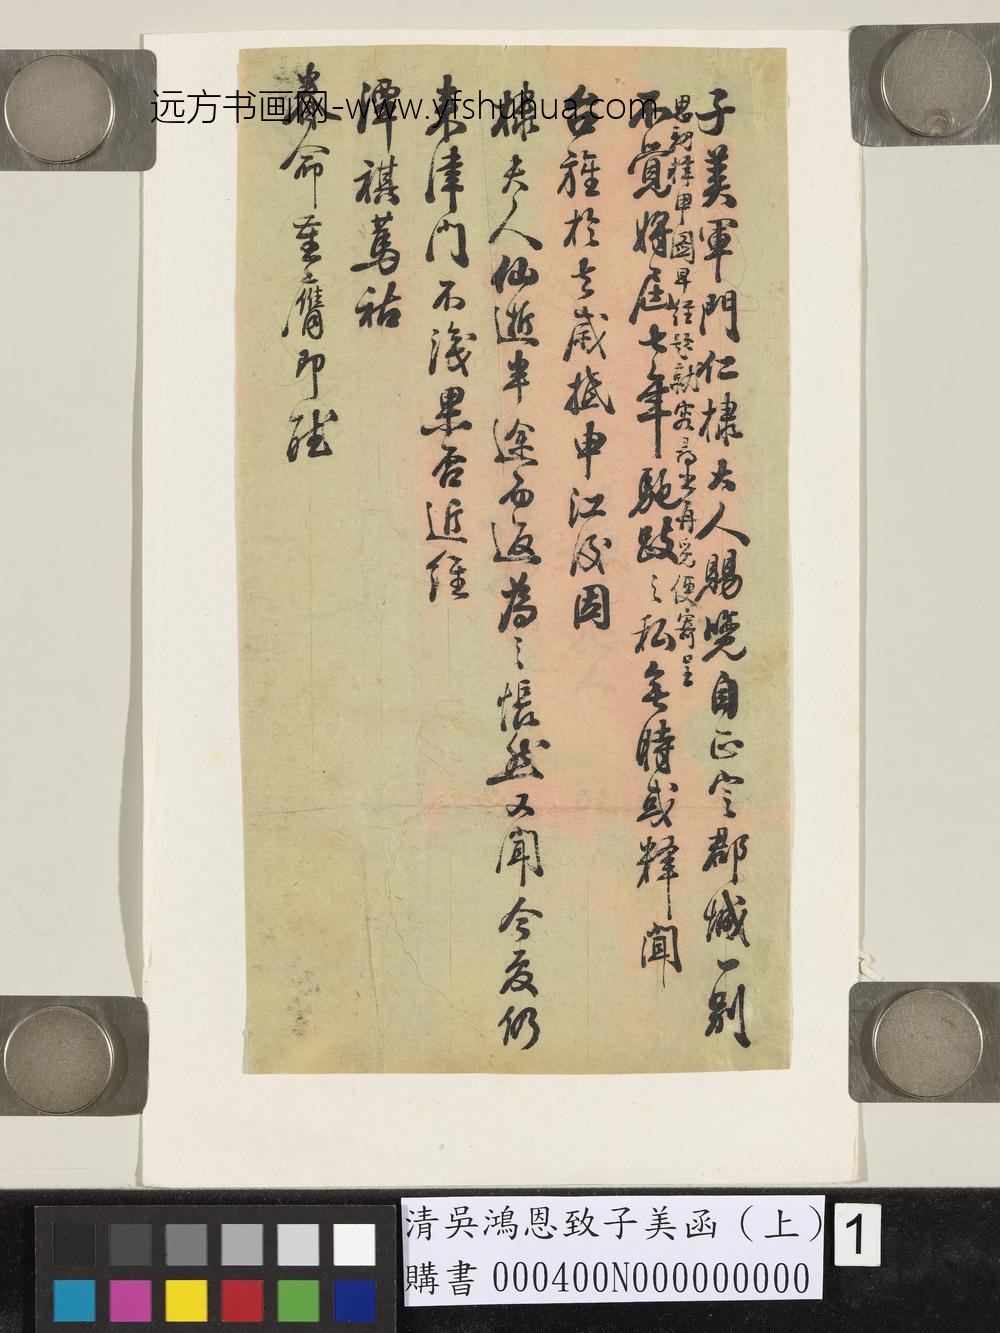 远方书画网-www.yfshuhua.com
子美軍門仁棣大人賜覽自正定郡城一别
思初擇申國早經題就容尋出再覓便寄呈
不覺將屆七年馳跂之私無時或釋聞
台旌於去歲抵申江後因
棣夫人仙逝半途而返為之悵然又聞今夏仍
來津門不識果否近維
潭祺蔦祜
命重之膺即
清吳鴻恩致子美函（上）
1
購書 000400N000000000